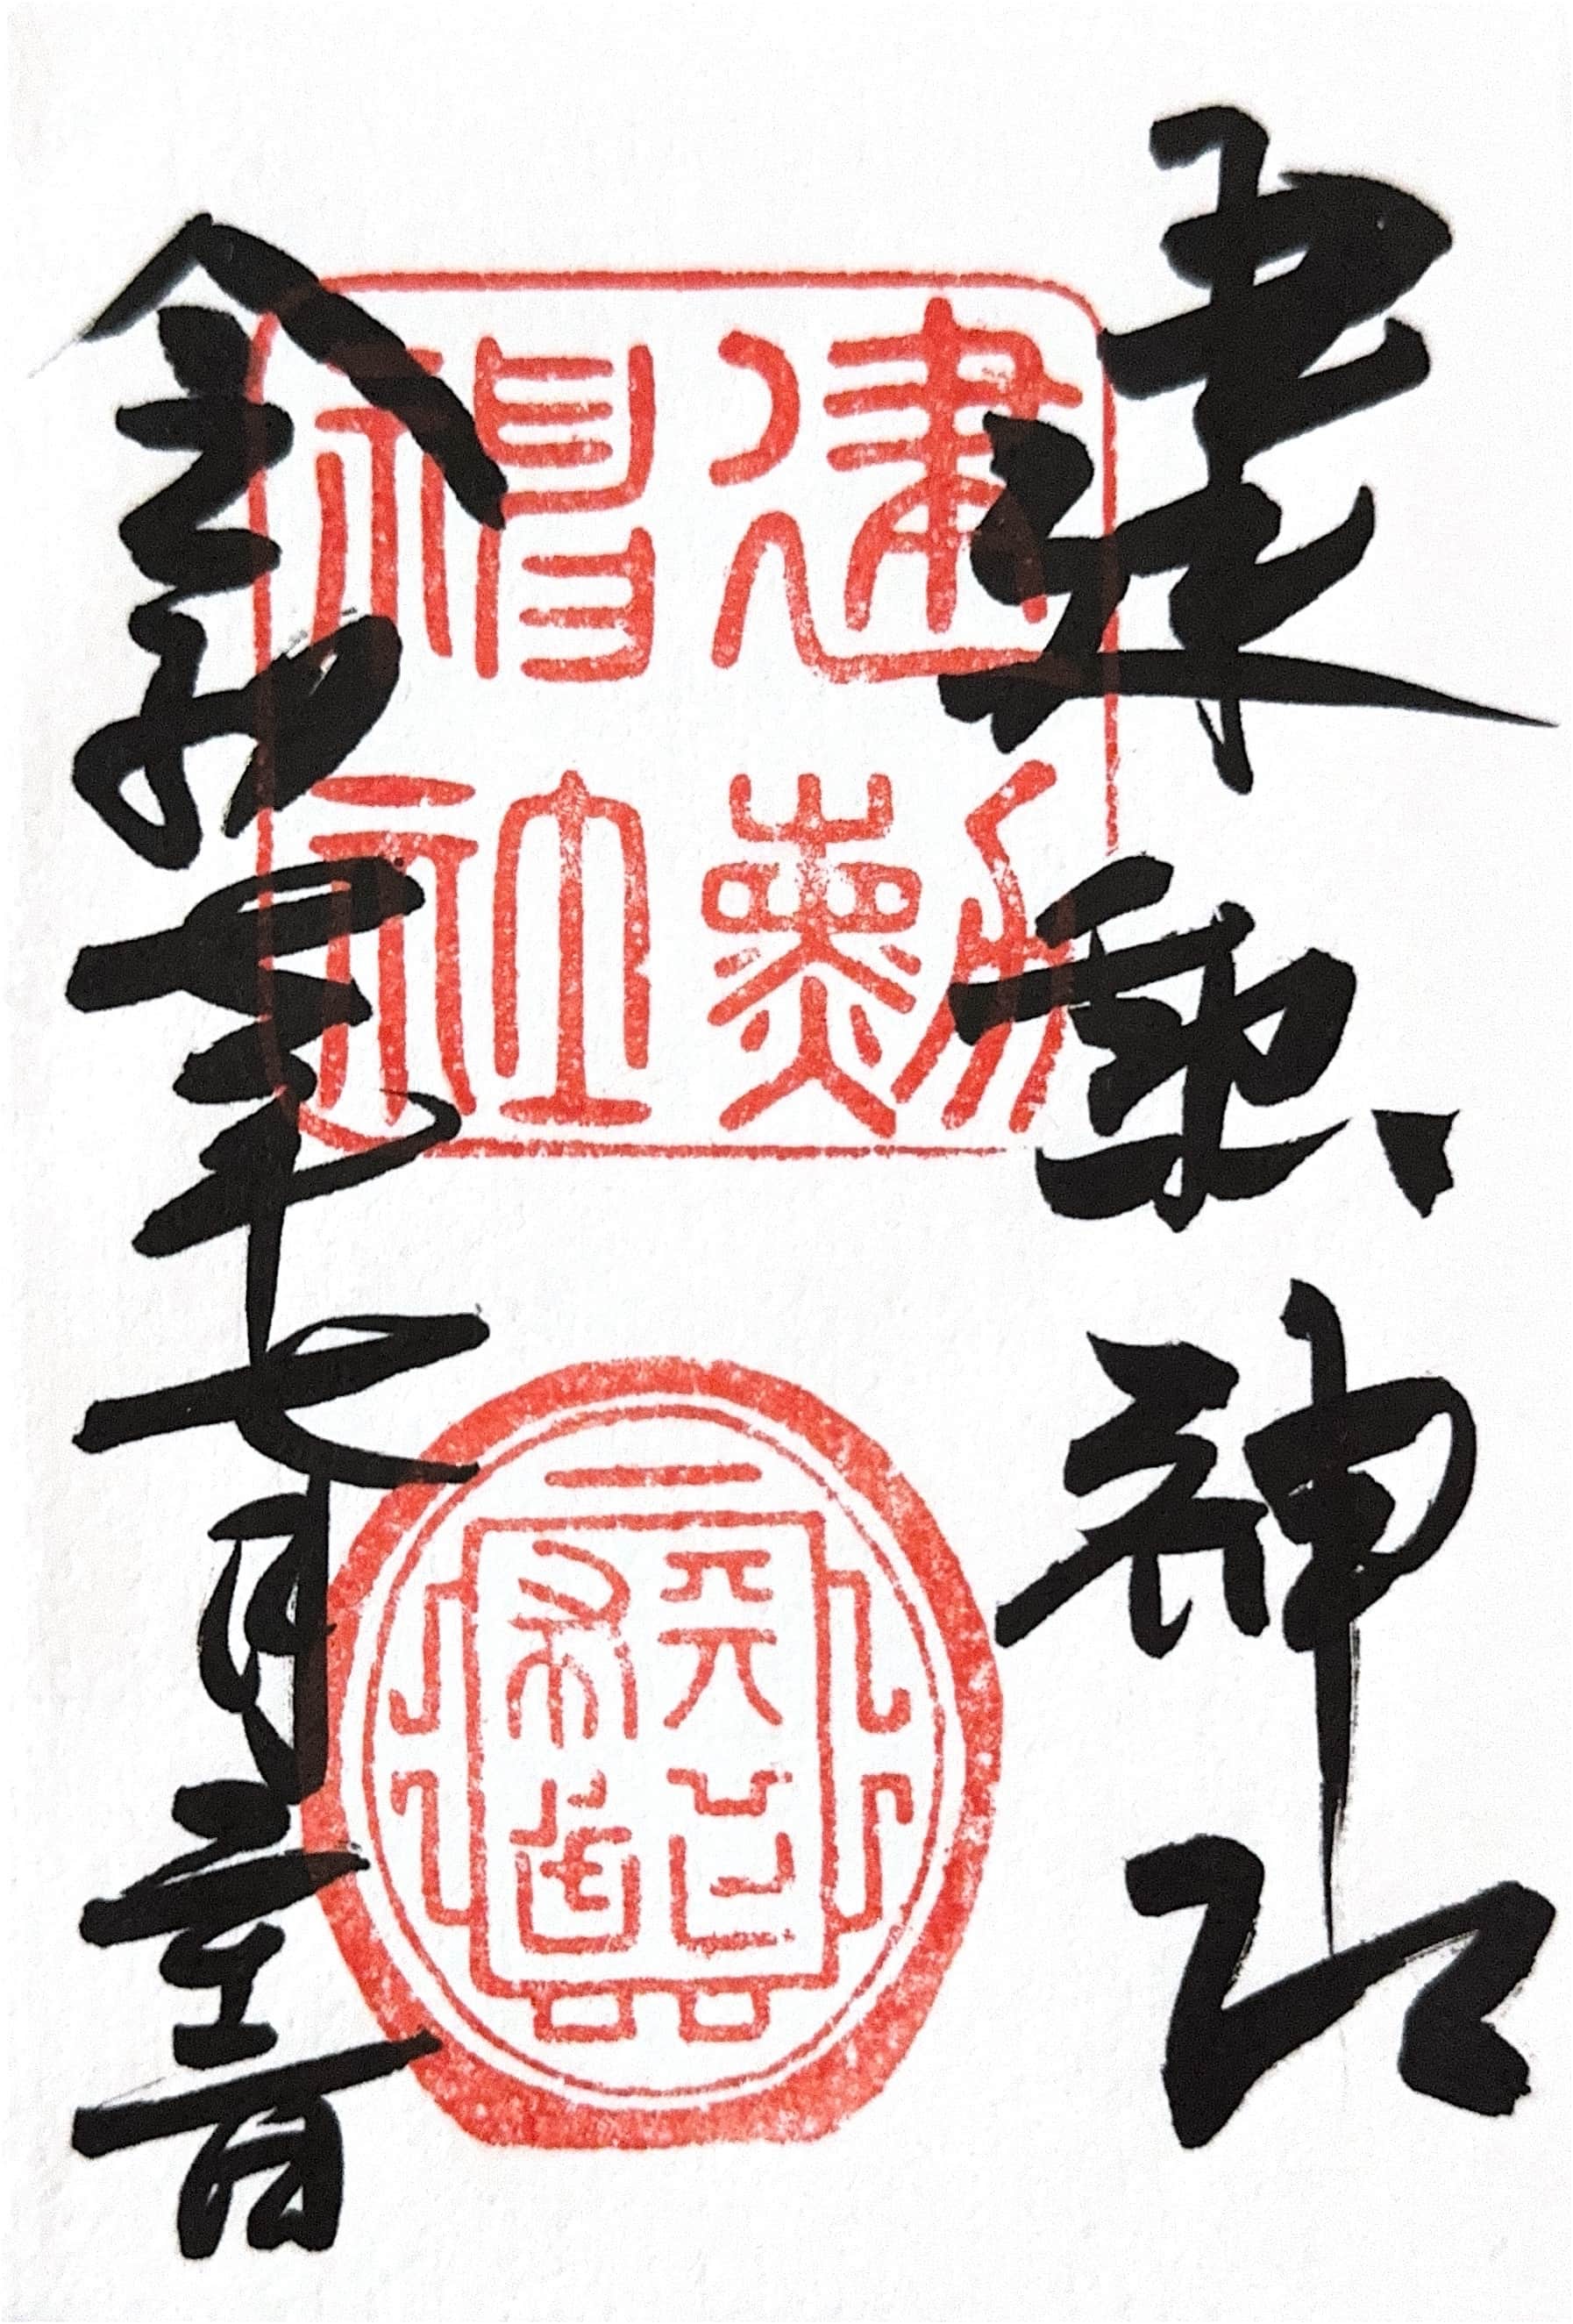 建勲神社
建勲神社
天下布武
令和四年七月